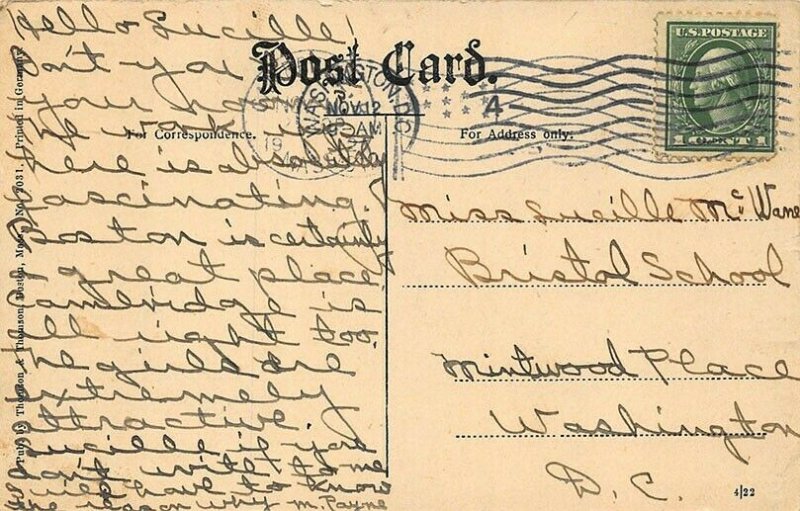 Hello Lucille
Post Card.
U.S. POSTAGE
1 CENT 1
WASHINGTON, D.C.
NOV 12
AM
4
For Correspondence.
For Address only.
Don't you
your
the work
here is absolutely
fascinating.
Boston is certainly
a great place
Cambridge is
all right too.
The girls are
extremely
attractive.
Lucille if you
don't write to me
I will have to know
the reason why M. Payne
Miss Lucille McWane
Bristol School
Mintwood Place
Washington
D. C.
4/22
Pub. by Thomson & Thomson, Boston, Mass. No. 7031. Printed in Germany